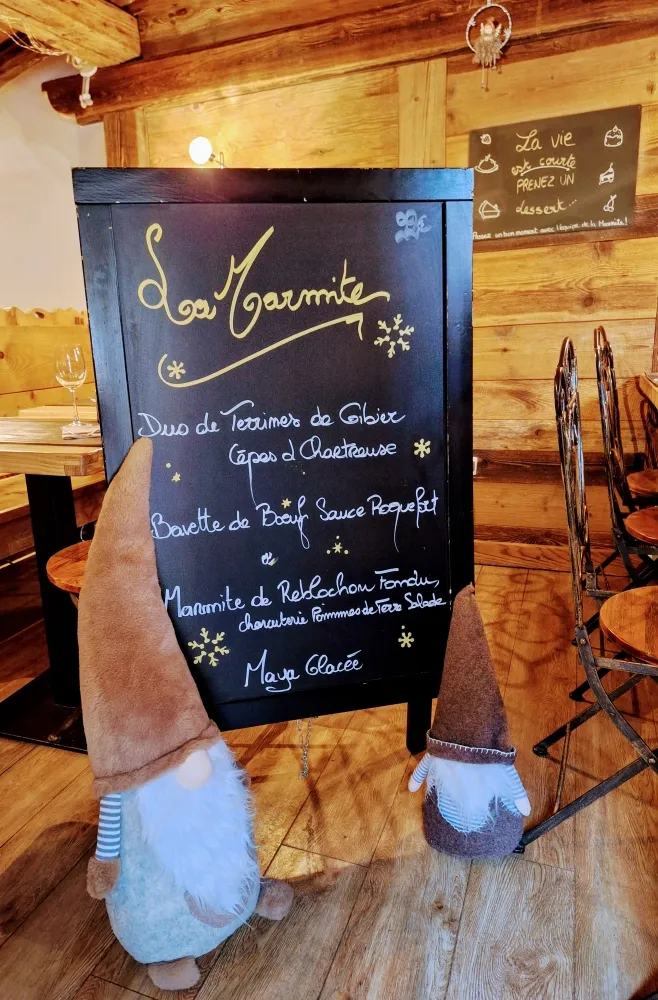 La Marmite
Duo de Terrines de Gibier
Cèpes et Chartreuse
Bavette de Bœuf Sauce Roquefort
ou
Marmite de Reblochon Fondu,
charcuterie Pommes de Terre Salade
Maya Glacée
La vie
est courte
PRENEZ UN
dessert...
Passez un bon moment avec l'équipe de la Marmite!